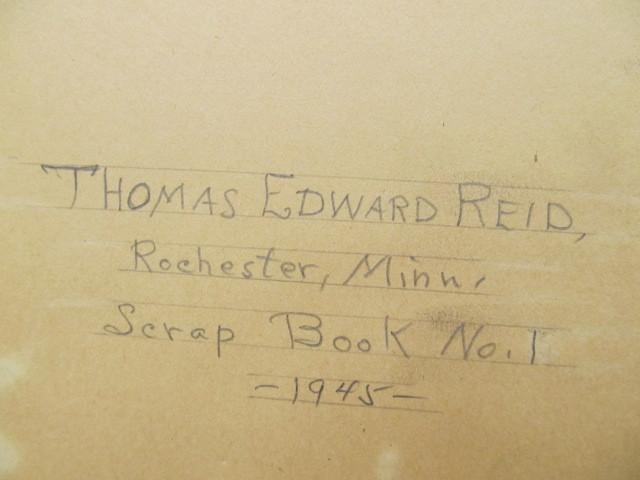 THOMAS EDWARD REID,
Rochester, Minn.
Scrap Book No. 1
-1945-